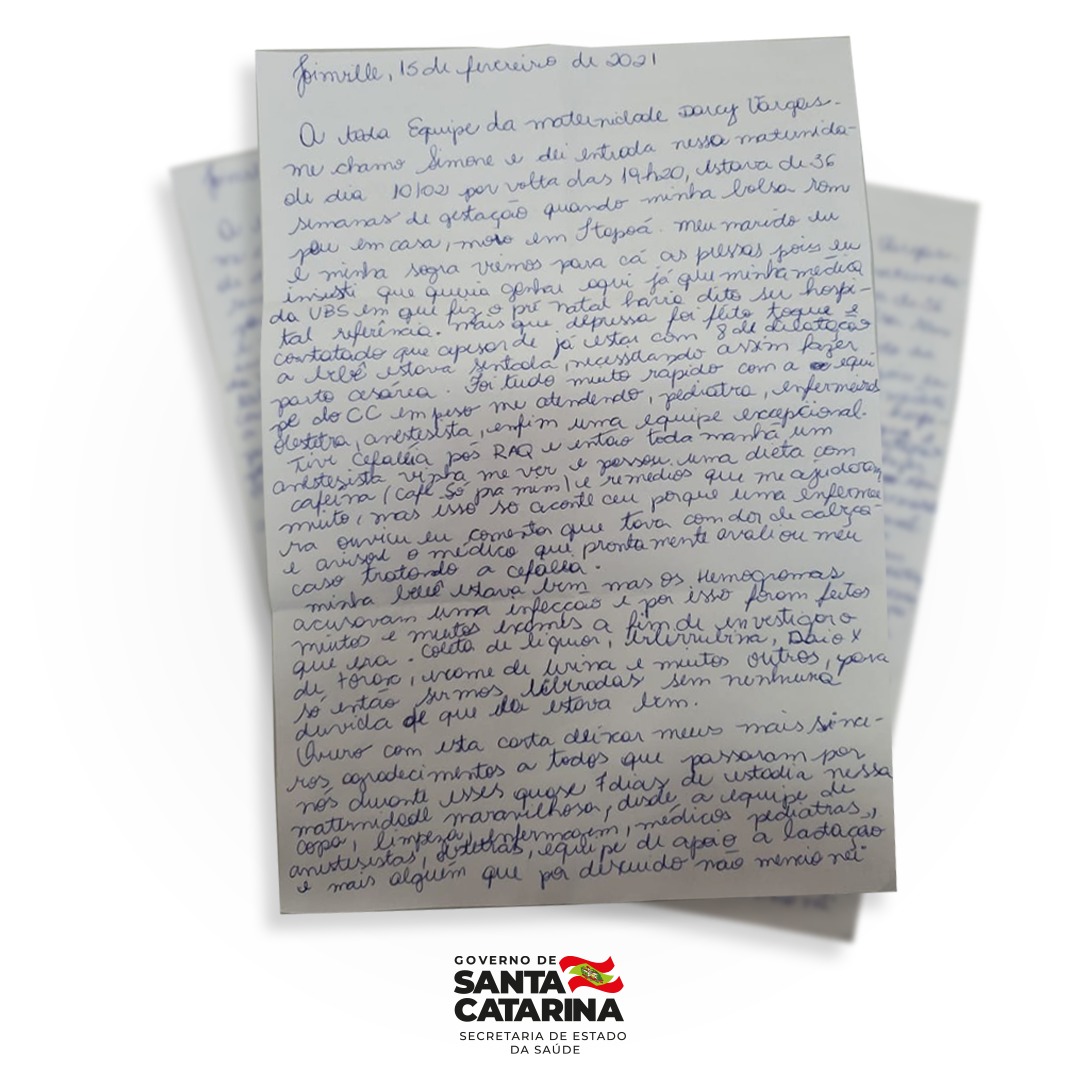 Joinville, 15 de fevereiro de 2021
A toda Equipe da maternidade Darcy Vargas.
me chamo Simone e dei entrada nessa maternida-
de dia 10/02 por volta das 19h20, estava de 36
semanas de gestação quando minha bolsa rom
peu em casa, moro em Itapoá. Meu marido eu
e minha sogra viemos para cá as pressas pois eu
insisti que queria ganhar aqui já que minha médica
da UBS em que fiz o pré natal havia dito ser hospi-
tal referência. Mais que depressa foi feito toque e
constatado que apesar de já estar com 8 de dilatação
a bebê estava sentada, necessitando assim fazer
parto cesárea. Foi tudo muito rápido com a equi
pe do CC em peso me atendendo, pediatra, enfermeiros
obstetra, anestesista, enfim uma equipe excepcional.
Tive cefaléia pós RAQ e então toda manhã um
anestesista vinha me ver e passou uma dieta com
cafeína (café só pra mim) e remédios que me ajudaram
muito, mas isso só aconteceu porque uma enfermei
ra ouviu eu comentar que tava com dor de cabeça
e avisou o médico que prontamente avaliou meu
caso tratando a cefaléia.
minha bebê estava bem mas os Hemogramas
acusavam uma infecção e por isso foram feitos
muitos e muitos exames a fim de investigar o
que era. Coleta de líquor, bilirrubina, Raio X
de tórax, exame de urina e muitos outros, para
só então sermos liberadas sem nenhuma
duvida de que ela estava bem.
Quero com esta carta deixar meus mais since-
ros agradecimentos a todos que passaram por
nós durante esses quase 7 dias de estadia nessa
maternidade maravilhosa, desde a equipe de
copa, limpeza, enfermagem, médicos pediatras,
anestesistas, obstetras, equipe de apoio a lactação
e mais alguém que por descuido não mencionei
GOVERNO DE
SANTA
CATARINA
SECRETARIA DE ESTADO
DA SAÚDE